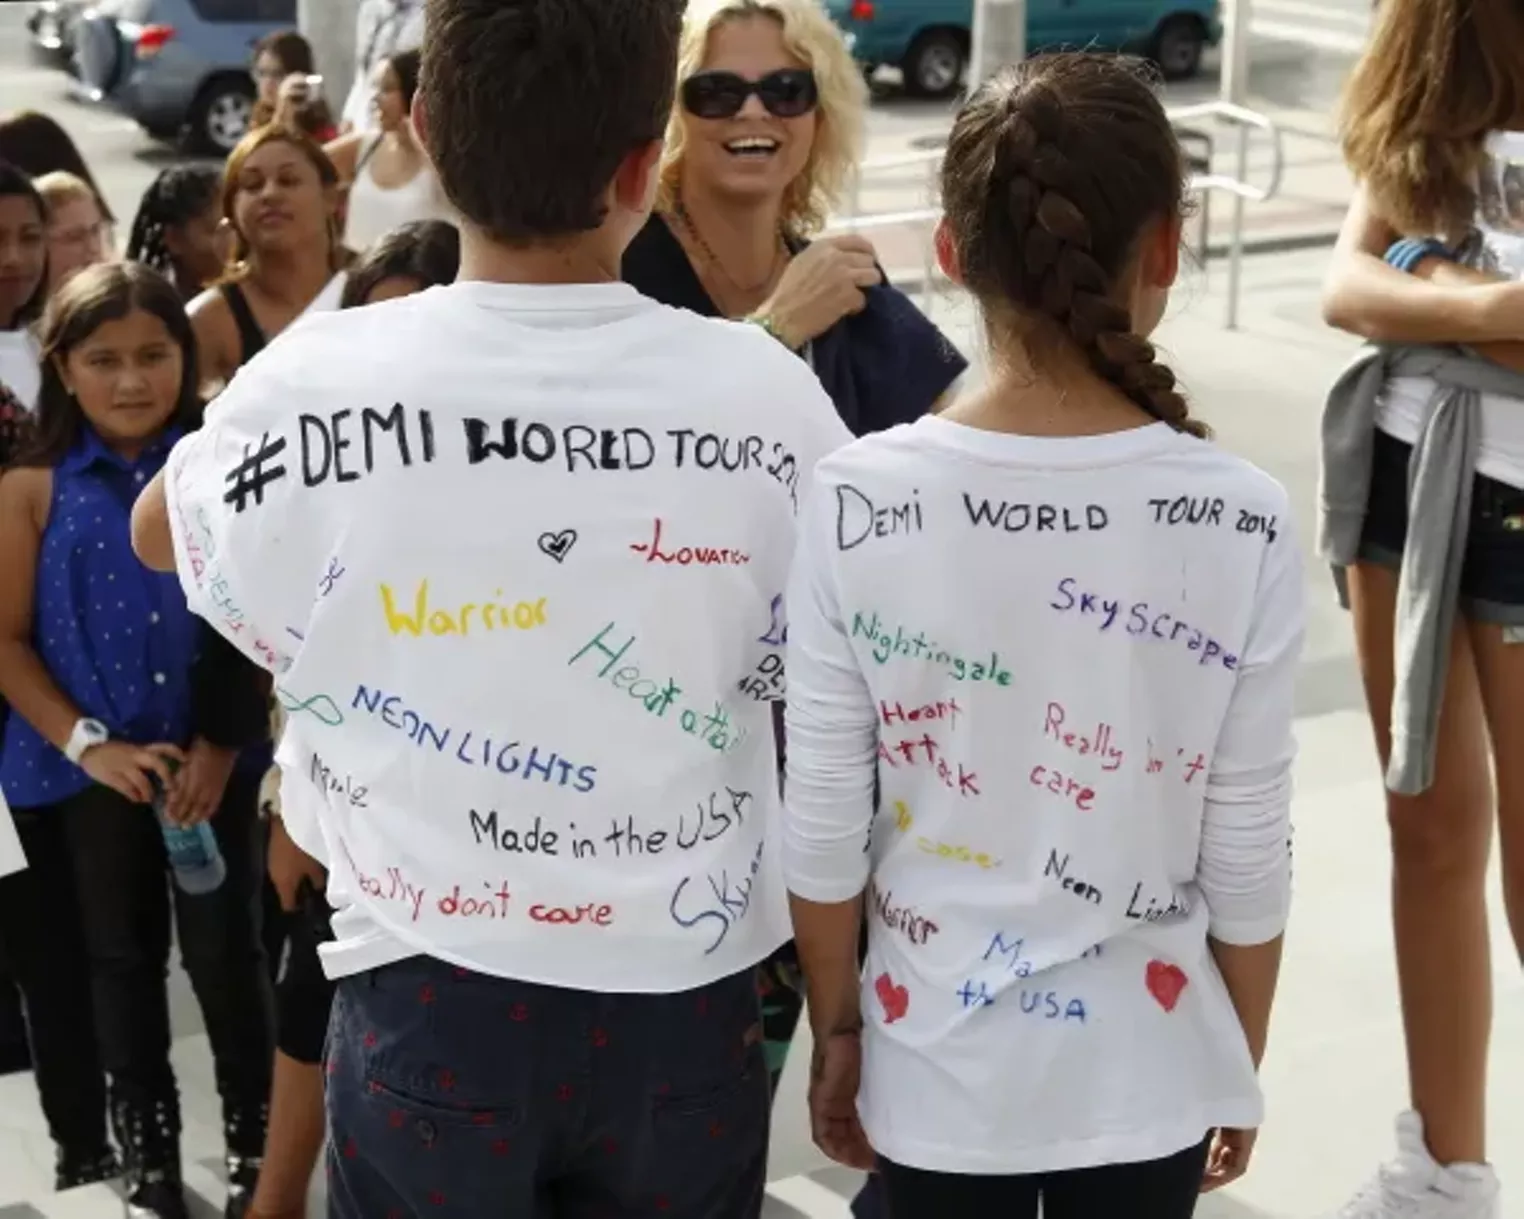 #DEMI WORLD TOUR
~LOVATIC
Warrior
Heart atta
NEON LIGHTS
Made in the USA
eally don't care
DEMI WORLD TOUR 2014
SkyScrape
Nightingale
Heart
Attack
Really
care
Neon Lights
Warrior
Ma
th USA